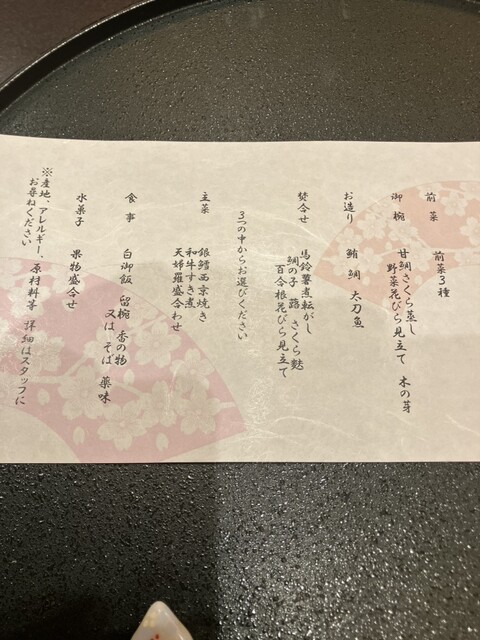 前菜　前菜３種
御椀　甘鯛さくら蒸し
野菜花びら見立て　木の芽
お造り　鮪　鯛　太刀魚
焚合せ　馬鈴薯煮転がし
鯛の子　蕗　さくら麩
百合根花びら見立て
３つの中からお選びください
主菜　銀鱈西京焼き
和牛すき煮
天婦羅盛合わせ
食事　白御飯　留椀　香の物
又は　そば　薬味
水菓子　果物盛合せ
※産地、アレルギー、原材料等　詳細はスタッフに
お尋ねください